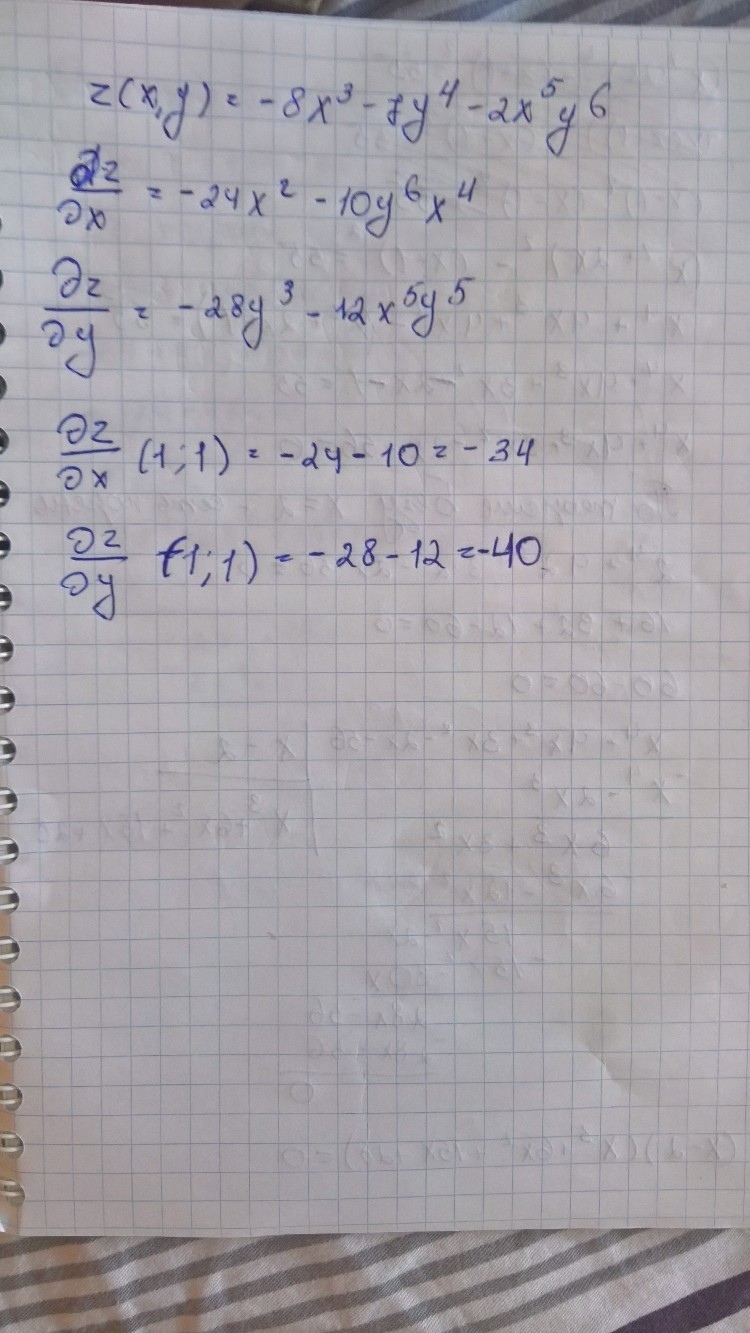 z(x,y) = -8x³ - 7y⁴ - 2x⁵y⁶
∂z/∂x = -24x² - 10y⁶x⁴
∂z/∂y = -28y³ - 12x⁵y⁵
∂z/∂x (1;1) = -24 - 10 = -34
∂z/∂y (1;1) = -28 - 12 = -40